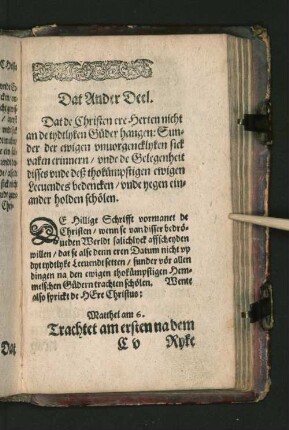 Dat Ander Deel.
Dat de Christen ere Herten nicht
an de tydtlyken Güder hangen: Sun-
der der ewigen vnuorgencklyken sick
vaken erinnern / vnde de Gelegenheit
disses vnde deß thokümpstigen ewigen
Leeuendes bedencken / vnde yegen ein-
ander holden schölen.
DE Hillige Schrifft vormanet de
Christen / wenn se van disser bedrö-
ueden Werldt salichlyck affscheyden
willen / dat se alse denn eren Datum nicht vp
dyt tydtlyke Leeuendt setten / sunder vör allen
dingen na den ewigen thokümpstigen Hem-
melschen Güdern trachten schölen. Wente
also spricke de HErr Christus:
Matthei am 6.
Trachtet am ersten na dem
C v Ryke
Dat